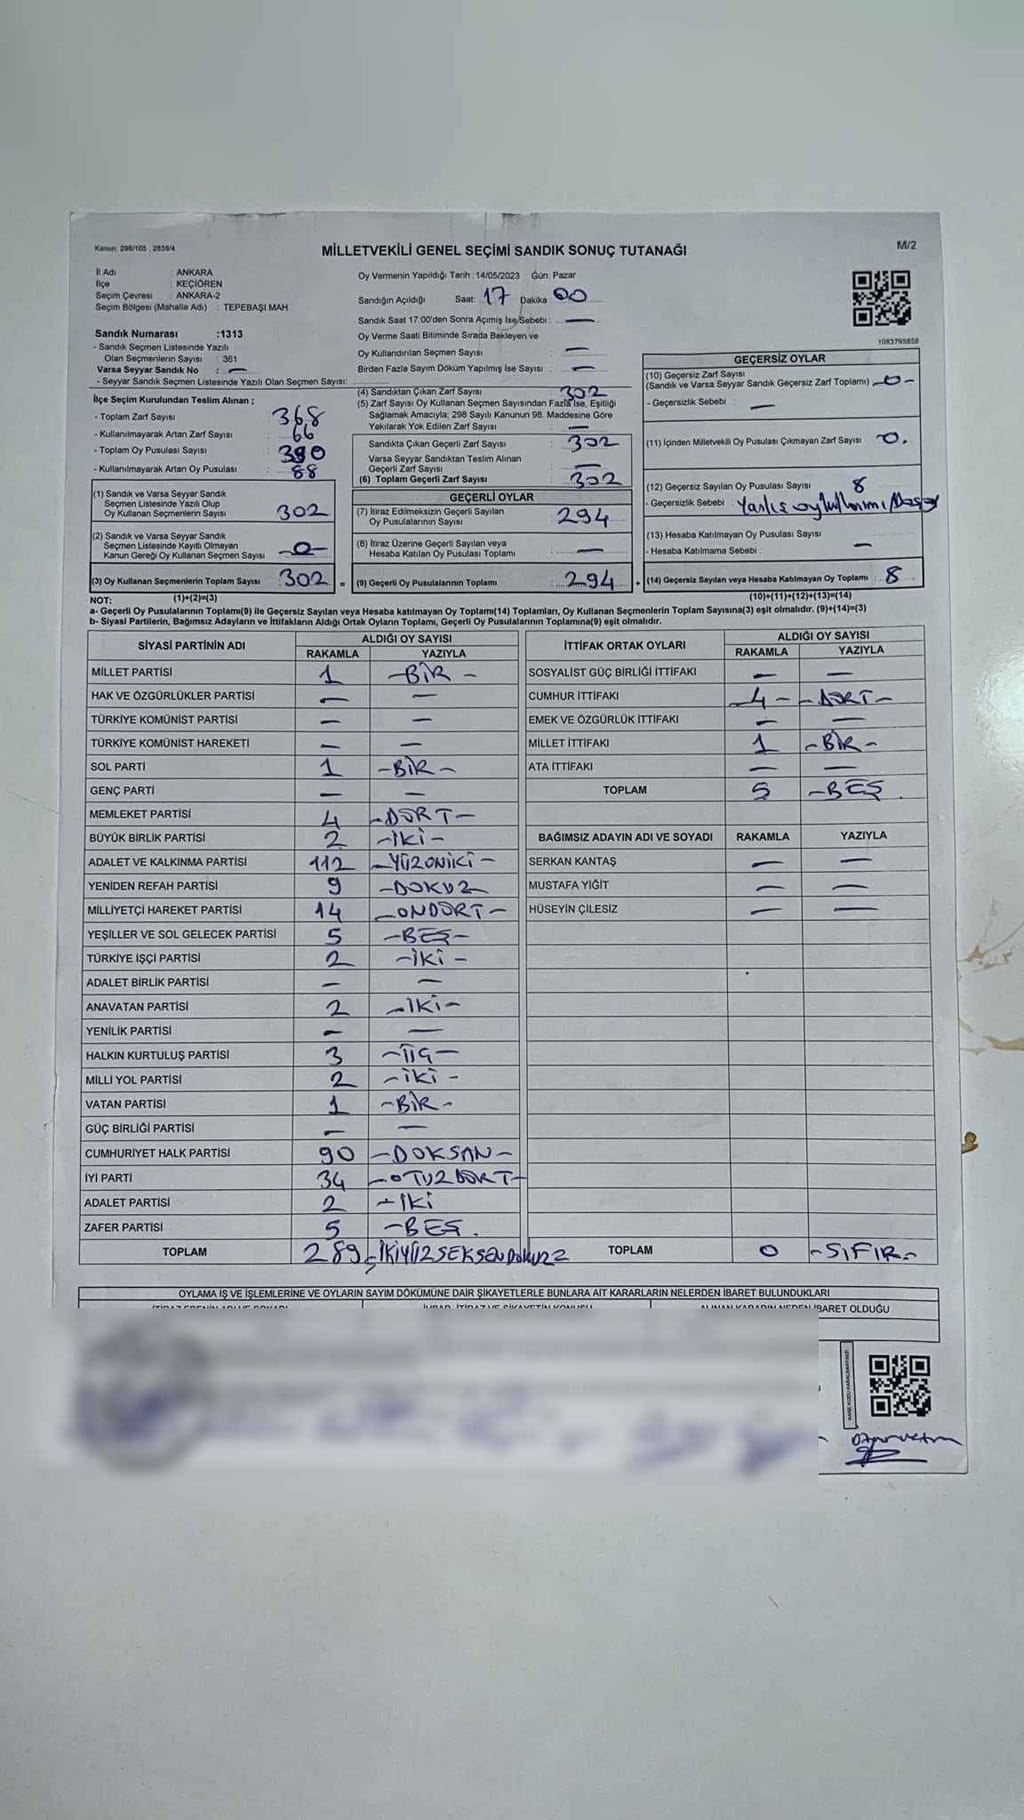 Kanun: 298/105 , 2839/4
MİLLETVEKİLİ GENEL SEÇİMİ SANDIK SONUÇ TUTANAĞI
M/2
İl Adı : ANKARA
İlçe : KEÇİÖREN
Seçim Çevresi : ANKARA-2
Seçim Bölgesi (Mahalle Adı) : TEPEBAŞI MAH
Oy Vermenin Yapıldığı Tarih : 14/05/2023 Gün: Pazar
Sandığın Açıldığı Saat: 17 Dakika 00
Sandık Saat 17:00'den Sonra Açımış İse Sebebi : —
Oy Verme Saati Bitiminde Sırada Bekleyen ve
Oy Kullandırılan Seçmen Sayısı —
Birden Fazla Sayım Döküm Yapılmış İse Sayısı : —
1083795858
Sandık Numarası :1313
- Sandık Seçmen Listesinde Yazılı
Olan Seçmenlerin Sayısı : 361
Varsa Seyyar Sandık No : —
- Seyyar Sandık Seçmen Listesinde Yazılı Olan Seçmen Sayısı:
İlçe Seçim Kurulundan Teslim Alınan :
- Toplam Zarf Sayısı : 368
- Kullanılmayarak Artan Zarf Sayısı : 66
- Toplam Oy Pusulası Sayısı : 390
- Kullanılmayarak Artan Oy Pusulası : 88
(1) Sandık ve Varsa Seyyar Sandık
Seçmen Listesinde Yazılı Olup
Oy Kullanan Seçmenlerin Sayısı 302
(2) Sandık ve Varsa Seyyar Sandık
Seçmen Listesinde Kayıtlı Olmayan
Kanun Gereği Oy Kullanan Seçmen Sayısı -0-
(3) Oy Kullanan Seçmenlerin Toplam Sayısı 302 =
(4) Sandıktan Çıkan Zarf Sayısı 302
(5) Zarf Sayısı Oy Kullanan Seçmen Sayısından Fazla İse, Eşitliği
Sağlamak Amacıyla; 298 Sayılı Kanunun 98. Maddesine Göre
Yakılarak Yok Edilen Zarf Sayısı : —
Sandıkta Çıkan Geçerli Zarf Sayısı : 302
Varsa Seyyar Sandıktan Teslim Alınan
Geçerli Zarf Sayısı : —
(6) Toplam Geçerli Zarf Sayısı : 302
GEÇERLİ OYLAR
(7) İtiraz Edilmeksizin Geçerli Sayılan
Oy Pusulalarının Sayısı : 294
(8) İtiraz Üzerine Geçerli Sayılan veya
Hesaba Katılan Oy Pusulası Toplamı : —
(9) Geçerli Oy Pusulalarının Toplamı : 294 +
GEÇERSİZ OYLAR
(10) Geçersiz Zarf Sayısı
(Sandık ve Varsa Seyyar Sandık Geçersiz Zarf Toplamı) -0-
- Geçersizlik Sebebi : —
(11) İçinden Milletvekili Oy Pusulası Çıkmayan Zarf Sayısı 0.
(12) Geçersiz Sayılan Oy Pusulası Sayısı : 8
- Geçersizlik Sebebi : Yanlış oy kullanımı/
(13) Hesaba Katılmayan Oy Pusulası Sayısı :
- Hesaba Katılmama Sebebi : —
(14) Geçersiz Sayılan veya Hesaba Katılmayan Oy Toplamı : 8
NOT: (1)+(2)=(3) (10)+(11)+(12)+(13)=(14)
a- Geçerli Oy Pusulalarının Toplamı(9) ile Geçersiz Sayılan veya Hesaba katılmayan Oy Toplam(14) Toplamları, Oy Kullanan Seçmenlerin Toplam Sayısına(3) eşit olmalıdır. (9)+(14)=(3)
b- Siyasi Partilerin, Bağımsız Adayların ve İttifakların Aldığı Ortak Oyların Toplamı, Geçerli Oy Pusulalarının Toplamına(9) eşit olmalıdır.
SİYASİ PARTİNİN ADI ALDIĞI OY SAYISI
RAKAMLA YAZIYLA
MİLLET PARTİSİ 1 -BİR-
HAK VE ÖZGÜRLÜKLER PARTİSİ — —
TÜRKİYE KOMÜNİST PARTİSİ — —
TÜRKİYE KOMÜNİST HAREKETİ — —
SOL PARTİ 1 -BİR-
GENÇ PARTİ — —
MEMLEKET PARTİSİ 4 -DÖRT-
BÜYÜK BİRLİK PARTİSİ 2 -İKİ-
ADALET VE KALKINMA PARTİSİ 112 -YÜZONİKİ-
YENİDEN REFAH PARTİSİ 9 -DOKUZ
MİLLİYETÇİ HAREKET PARTİSİ 14 -ONDÖRT-
YEŞİLLER VE SOL GELECEK PARTİSİ 5 -BEŞ-
TÜRKİYE İŞÇİ PARTİSİ 2 -İKİ-
ADALET BİRLİK PARTİSİ — —
ANAVATAN PARTİSİ 2 -İKİ-
YENİLİK PARTİSİ — —
HALKIN KURTULUŞ PARTİSİ 3 -ÜÇ-
MİLLİ YOL PARTİSİ 2 -İKİ-
VATAN PARTİSİ 1 -BİR-
GÜÇ BİRLİĞİ PARTİSİ — —
CUMHURİYET HALK PARTİSİ 90 -DOKSAN-
İYİ PARTİ 34 -OTUZDÖRT-
ADALET PARTİSİ 2 -İKİ
ZAFER PARTİSİ 5 -BEŞ.
TOPLAM 289 -İKİYÜZSEKSENDOKUZ
İTTİFAK ORTAK OYLARI ALDIĞI OY SAYISI
RAKAMLA YAZIYLA
SOSYALİST GÜÇ BİRLİĞİ İTTİFAKI — —
CUMHUR İTTİFAKI -4- -DÖRT-
EMEK VE ÖZGÜRLÜK İTTİFAKI — —
MİLLET İTTİFAKI 1 -BİR-
ATA İTTİFAKI — —
TOPLAM 5 -BEŞ
BAĞIMSIZ ADAYIN ADI VE SOYADI RAKAMLA YAZIYLA
SERKAN KANTAŞ — —
MUSTAFA YİĞİT — —
HÜSEYİN ÇİLESİZ — —
TOPLAM 0 -SIFIR-
OYLAMA İŞ VE İŞLEMLERİNE VE OYLARIN SAYIM DÖKÜMÜNE DAİR ŞİKAYETLERLE BUNLARA AİT KARARLARIN NELERDEN İBARET BULUNDUKLARI
İBARET OLDUĞU